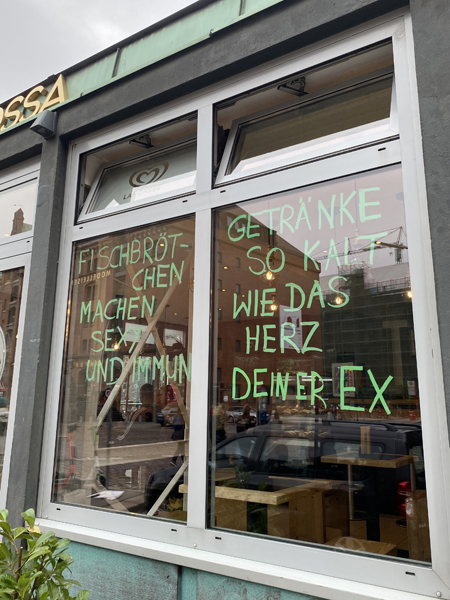 OSSA
FISCHBRÖT-
CHEN
MACHEN
SEXY
UND IMMUN
GETRÄNKE
SO KALT
WIE DAS
HERZ
DEINER EX